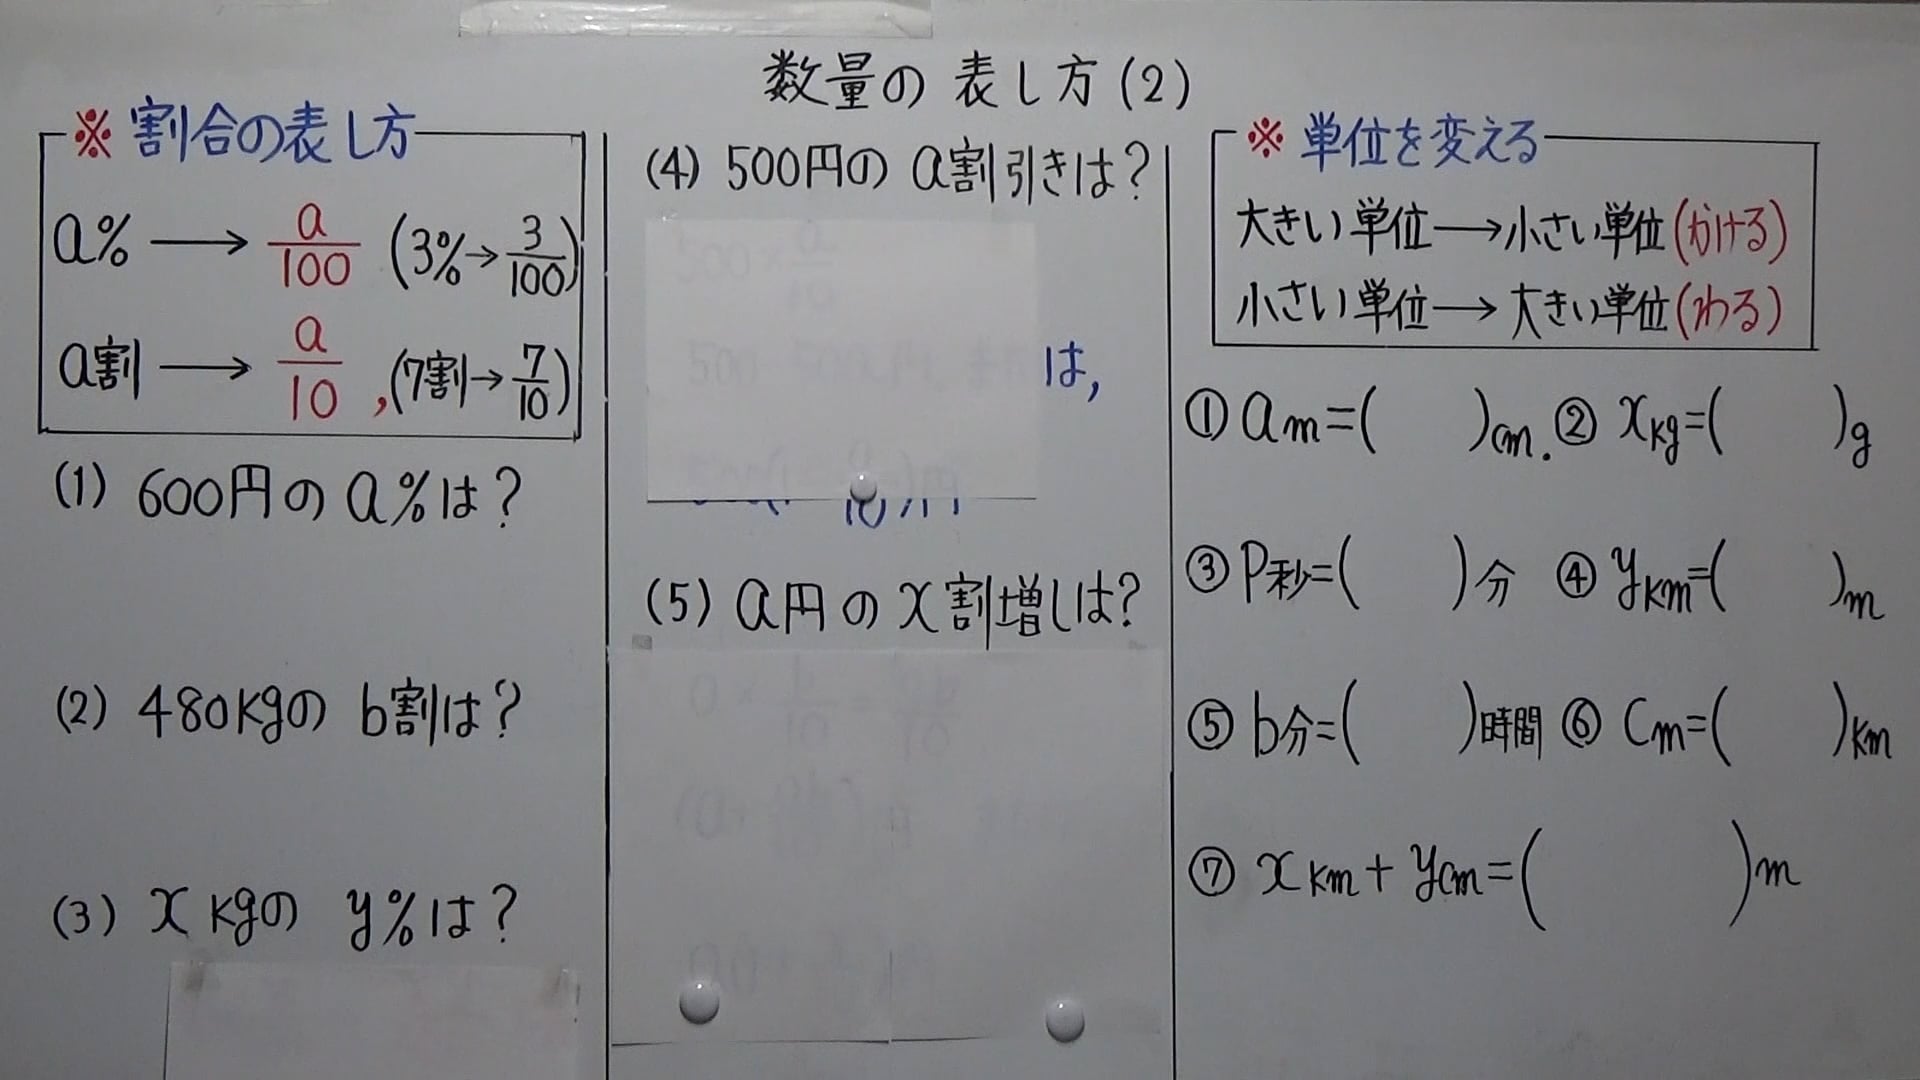 数量の表し方(2)
※割合の表し方
a% → a/100 (3%→3/100)
a割 → a/10, (7割→7/10)
(1) 600円のa%は?
(2) 480kgのb割は?
(3) x kgの y%は?
(4) 500円の a割引きは?
は,
(5) a円のx割増しは?
※単位を変える
大きい単位→小さい単位(かける)
小さい単位→大きい単位(わる)
① am=( )cm. ② xkg=( )g
③ P秒=( )分 ④ ykm=( )m
⑤ b分=( )時間 ⑥ Cm=( )km
⑦ xkm+ycm=( )m